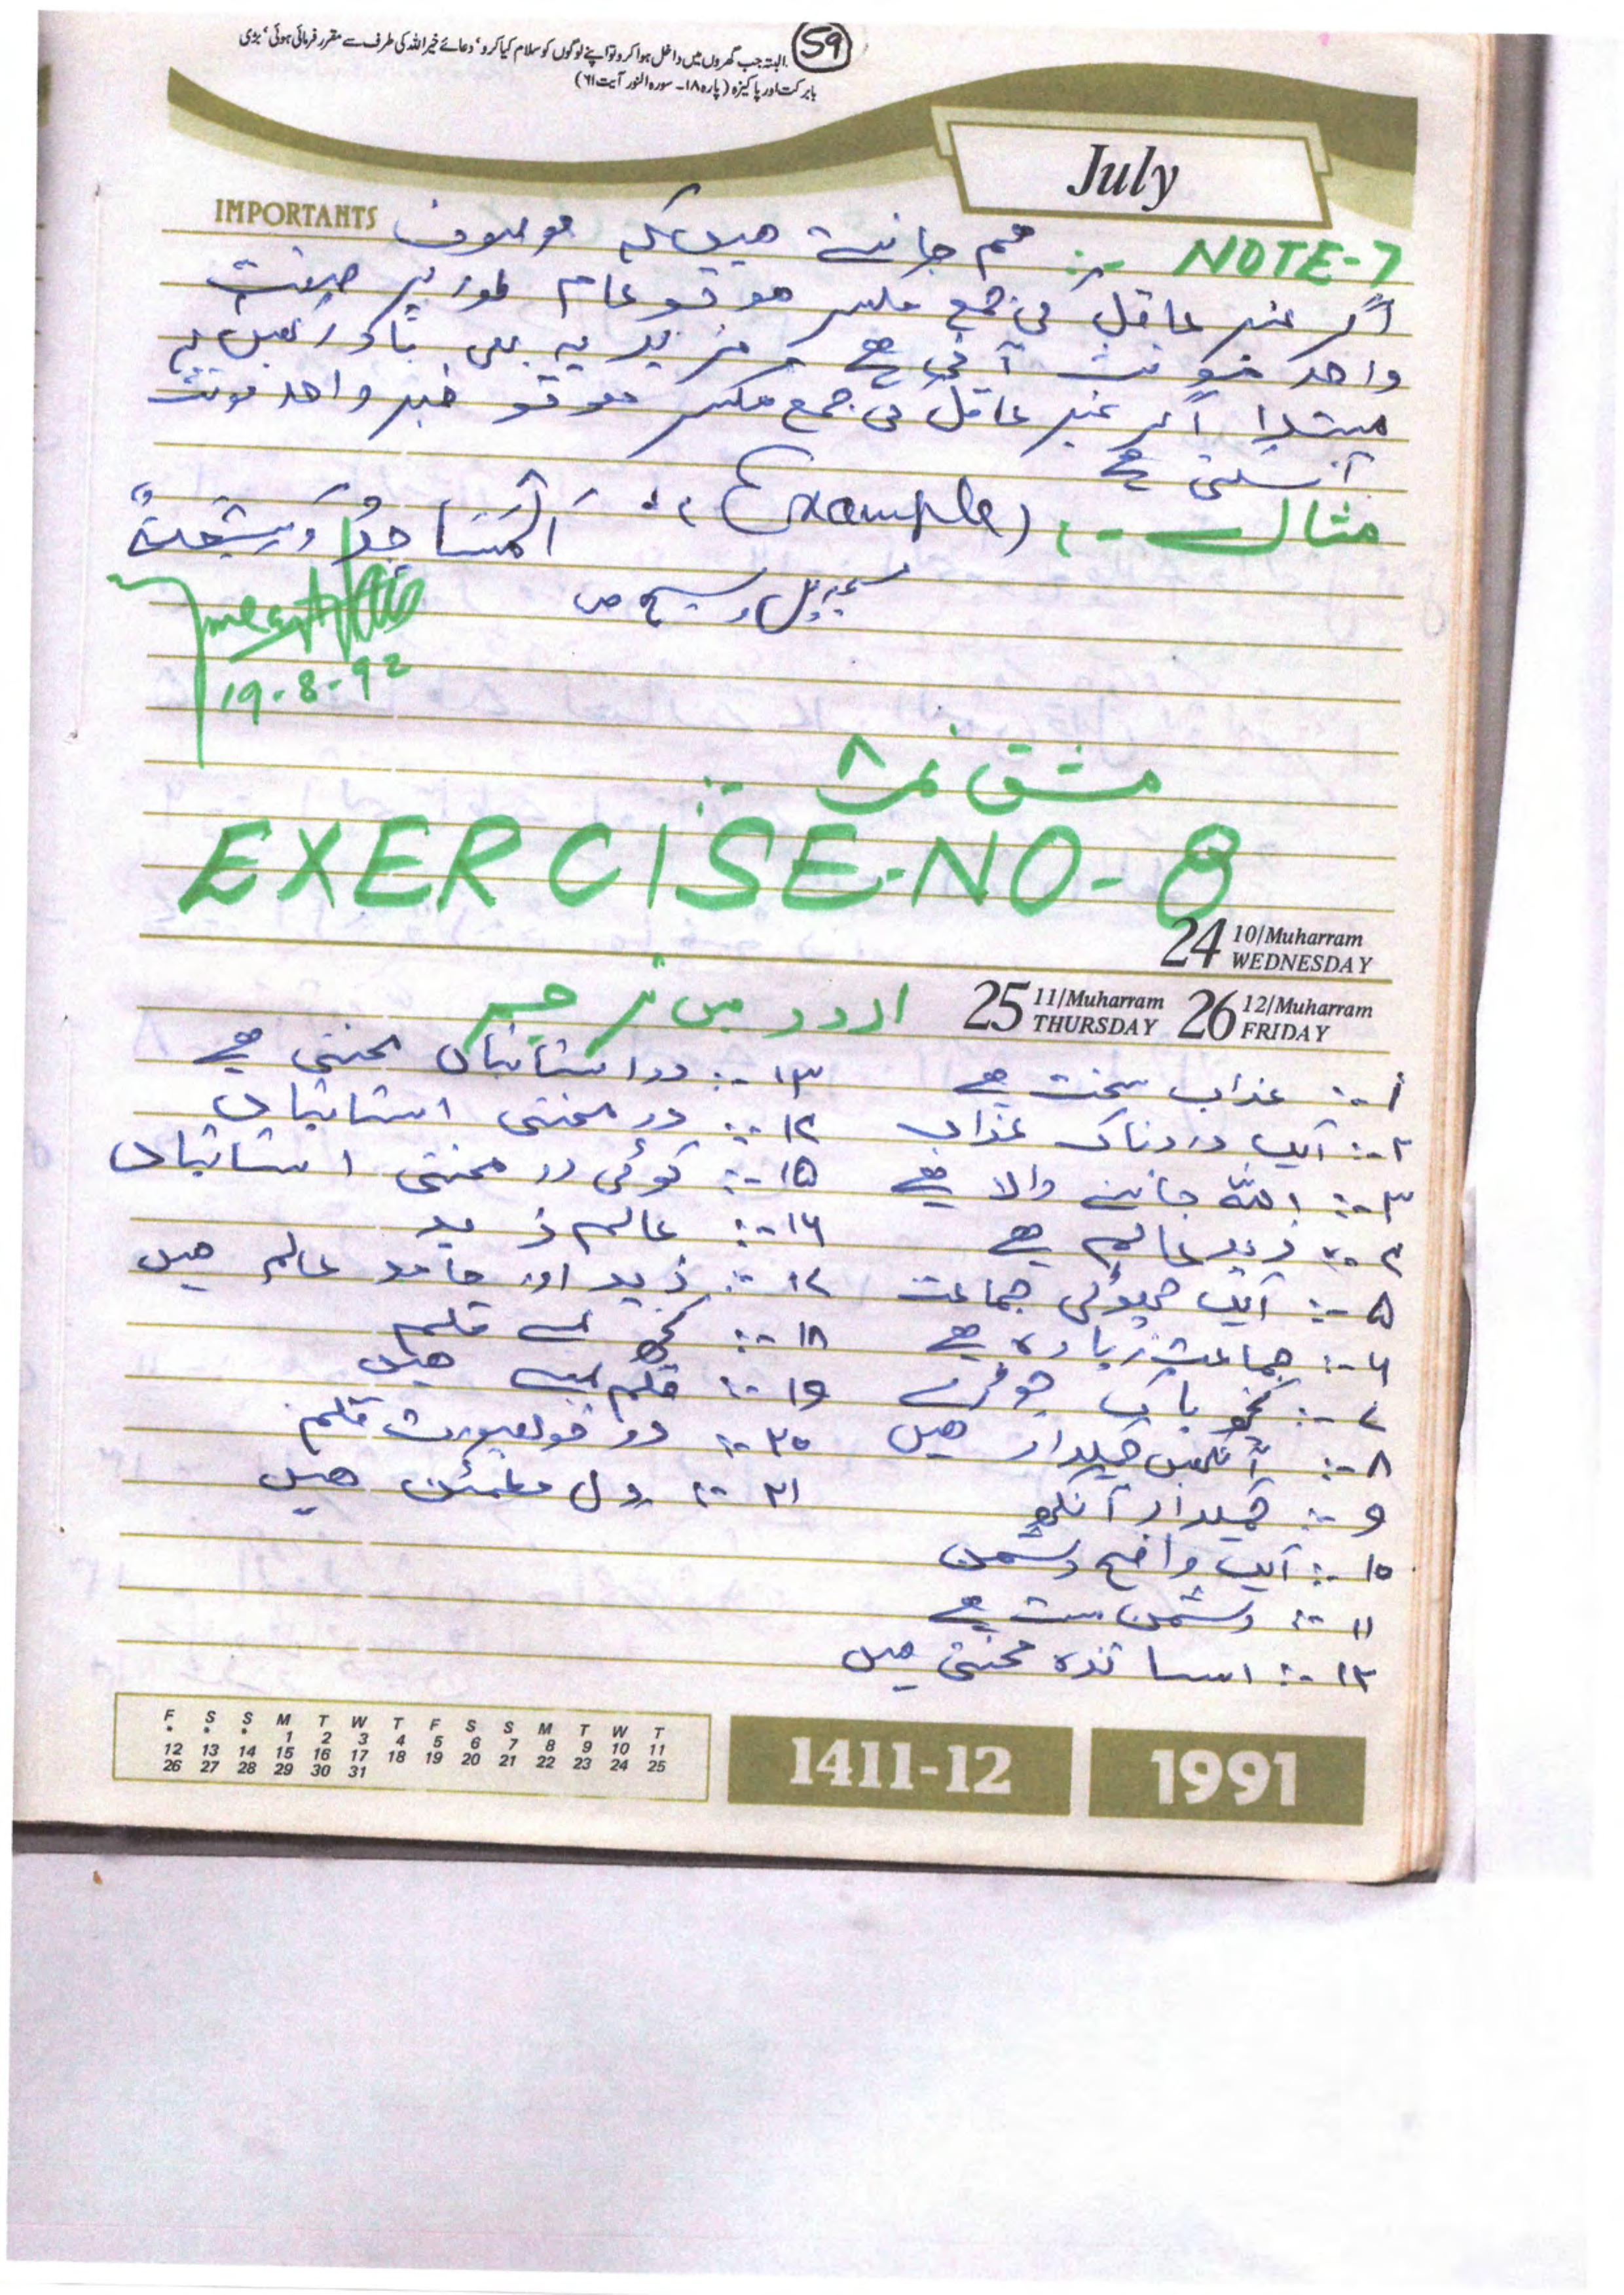 59
البتہ جب گھروں میں داخل ہوا کرو تو اپنے لوگوں کو سلام کیا کرو، دعائے خیر اللہ کی طرف سے مقرر فرمائی ہوئی، بڑی
بابرکت اور پاکیزہ (پارہ ۱۸۔ سورہ النور آیت ۶۱)
July
IMPORTANTS
NOTE-7 :- ہم جانتے ہیں کہ موصوف
اگر غیر عاقل کی جمع مکسر ہو تو عام طور پر صفت
واحد مؤنث آتی ہے مزید یہ بھی یاد رکھیں کہ
مبتدا اگر غیر عاقل کی جمع مکسر ہو تو خبر واحد مونث
آ سکتی ہے
مثال :- (Example) :- اَلْمَسَاجِدُ وَسِیْعَةٌ
مسجدیں وسیع ہیں
19-8-92
مشق نمبر ۸ :-
EXERCISE-NO-8
24 10/Muharram WEDNESDAY
25 11/Muharram THURSDAY 26 12/Muharram FRIDAY
اردو میں ترجمہ
۱ :- عذاب سخت ہے
۲ :- ایک دردناک عذاب
۳ :- اللہ جاننے والا ہے
۴ :- زید عالم ہے
۵ :- ایک چھوٹی جماعت
۶ :- جماعت زیادہ ہے
۷ :- کچھ پاک جوڑے
۸ :- آنکھیں چمکدار ہیں
۹ :- چمکدار آنکھ
۱۰ :- ایک واضح دشمن
۱۱ :- دشمن ہے
۱۲ :- اساتذہ محنتی ہیں
۱۳ :- دو استانیاں محنتی ہے
۱۴ :- دو محنتی استانیاں
۱۵ :- کوئی دو محنتی استانیاں
۱۶ :- عالم زید
۱۷ :- زید اور حامد عالم ہیں
۱۸ :- کچھ لمبے قلم
۱۹ :- قلم لمبے ہیں
۲۰ :- دو خوبصورت قلم
۲۱ :- دل مطمئن ہیں
F S S M T W T F S S M T W T
* * * 1 2 3 4 5 6 7 8 9 10 11
12 13 14 15 16 17 18 19 20 21 22 23 24 25
26 27 28 29 30 31
1411-12
1991